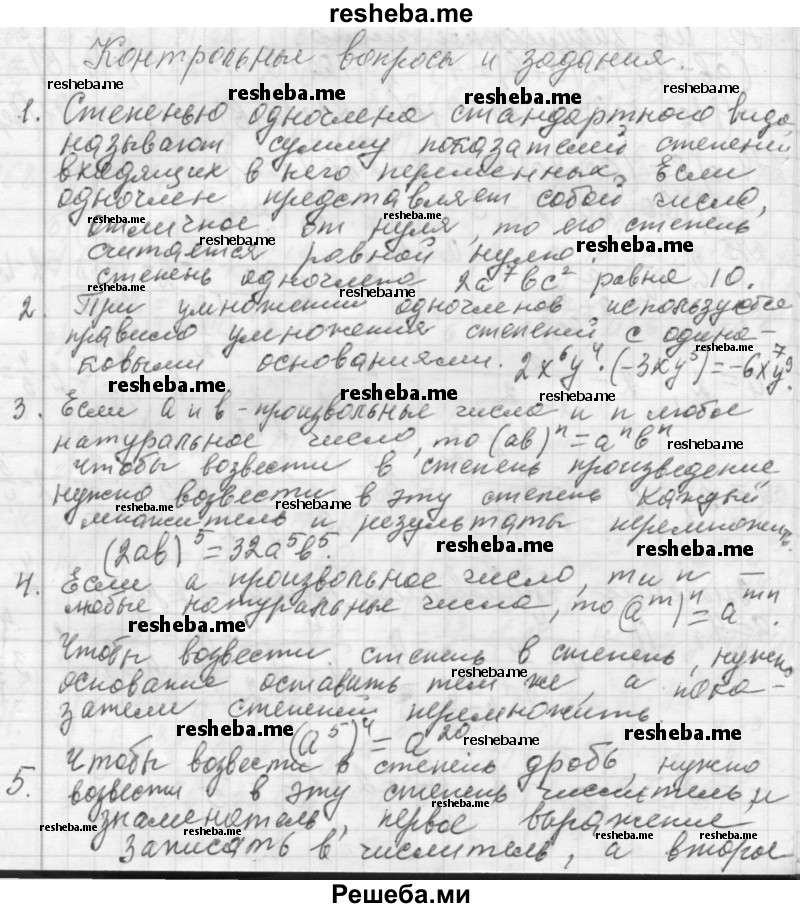 resheba.me
Контрольные вопросы и задания.
resheba.me resheba.me resheba.me
1. Степенью одночлена стандартного вида
называют сумму показателей степеней
входящих в него переменных. Если
одночлен представляет собой число,
отличное от нуля, то его степень
resheba.me resheba.me
считается равной нулю.
resheba.me resheba.me
степень одночлена 2a⁷bc² равна 10.
resheba.me
2. При умножении одночленов используется
правило умножения степеней с одина-
resheba.me resheba.me
ковыми основаниями. 2x⁶y⁴·(-3xy⁵)=-6x⁷y⁹.
resheba.me resheba.me
3. Если a и b - произвольные числа и n любое
натуральное число, то (ab)ⁿ=aⁿbⁿ
resheba.me resheba.me
Чтобы возвести в степень произведение
нужно возвести в эту степень каждый
resheba.me resheba.me
множитель и результаты перемножить.
(2ab)⁵=32a⁵b⁵.
resheba.me resheba.me
4. Если a произвольное число, m и n —
любые натуральные числа, то (aᵐ)ⁿ=aᵐⁿ.
resheba.me
Чтобы возвести степень в степень, нужно
resheba.me
основание оставить тем же, а пока-
затели степеней перемножить.
resheba.me resheba.me resheba.me
(a⁵)⁴=a²⁰
5. Чтобы возвести в степень дробь, нужно
возвести в эту степень числитель и
resheba.me
знаменатель, первое выражение
resheba.me resheba.me resheba.me resheba.me
записать в числитель, а второе
Решеба.ми